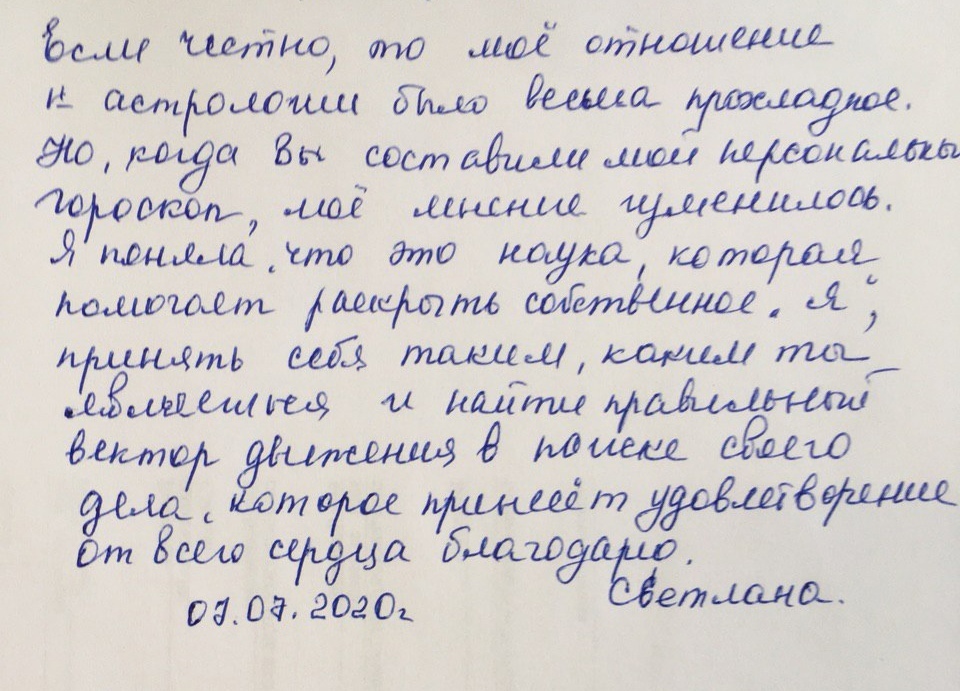 Если честно, то моё отношение
к астрологии было весьма прохладное.
Но, когда Вы составили мой персональны
гороскоп, моё мнение изменилось.
Я поняла, что это наука, которая
помогает раскрыть собственное „Я“,
принять себя таким, каким ты
являешься и найти правильный
вектор движения в поиске своего
дела, которое принесёт удовлетворение
От всего сердца благодарю.
Светлана.
07.07.2020г